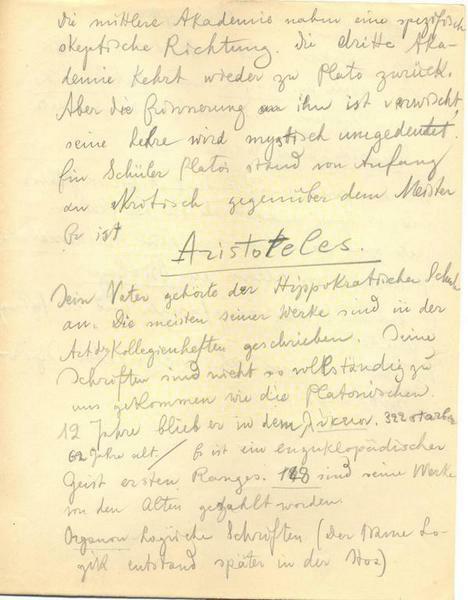 die mittlere Akademie nahm eine spezifisch
skeptische Richtung. Die dritte Aka-
demie kehrt wieder zu Plato zurück.
Aber die Erinnerung an ihn ist verwischt,
seine Lehre wird mystisch umgedeutet.
Ein Schüler Platos stand von Anfang
an kritisch gegenüber dem Meister
Es ist
Aristoteles.
Sein Vater gehörte der Hippokratischen Schule
an. Die meisten seiner Werke sind in der
Art der Kollegienheften geschrieben. Seine
Schriften sind nicht so vollständig zu
uns gekommen wie die Platonischen.
12 Jahre blieb er in dem 322 starb er
62 Jahre alt. / Er ist ein enzyklopädischer
Geist ersten Ranges. 148 sind seine Werke
von den Alten gezählt worden.
Organon Logische Schriften (Der Name Lo-
gik entstand später in der Stoa)